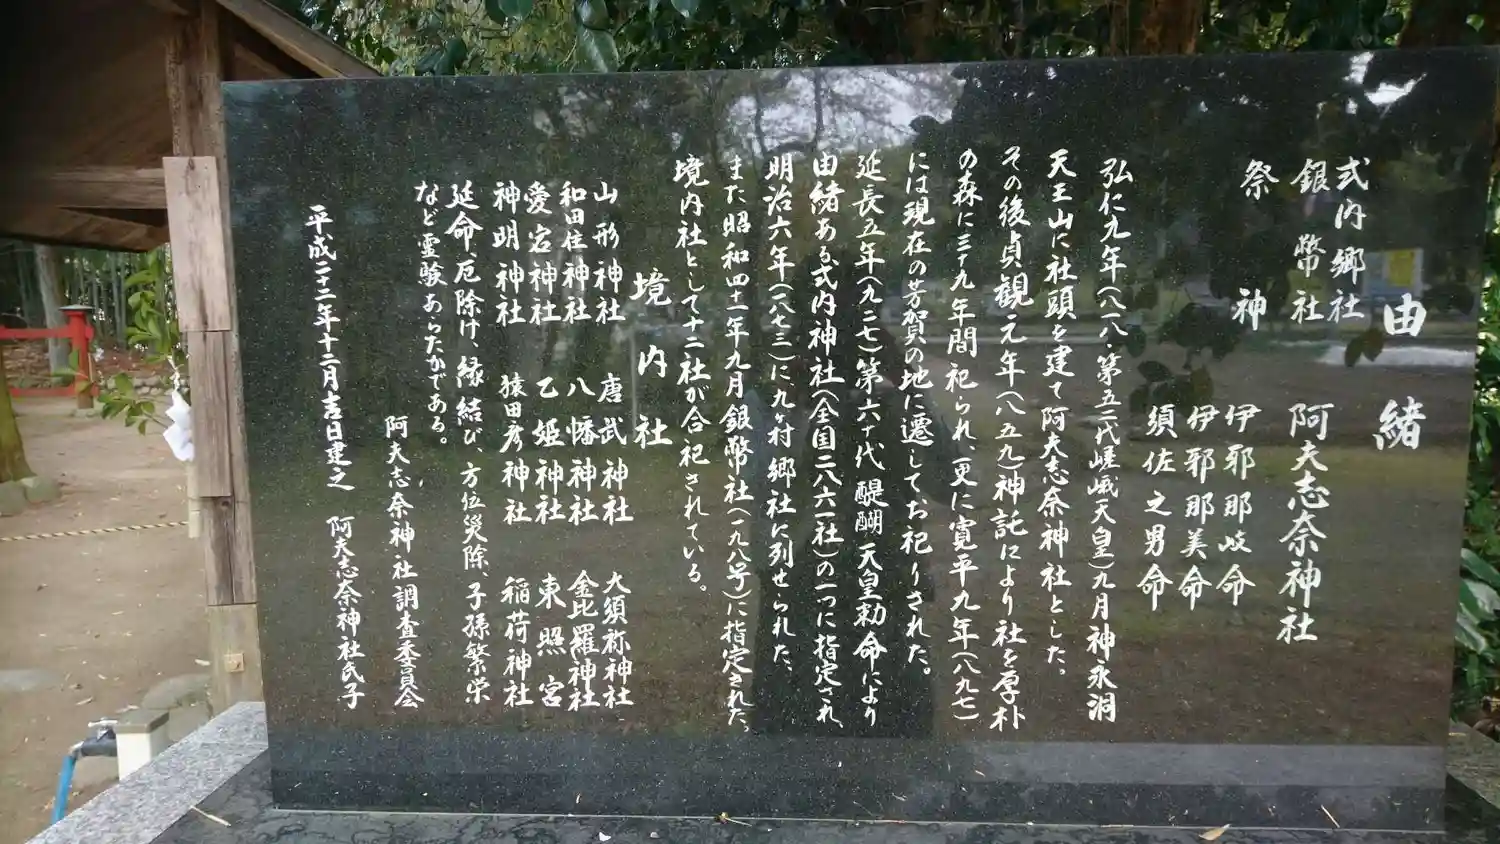 由緒
式内郷社
銀幣社 阿夫志奈神社
祭神 伊邪那岐命
伊邪那美命
須佐之男命
弘仁九年(八一八・第五二代嵯峨天皇)九月神永洞
天王山に社頭を建て阿夫志奈神社とした。
その後貞観元年(八五九)神託により社を厚朴
の森に三十九年間祀られ、更に寛平九年(八九七)
には現在の芳賀の地に遷してお祀りされた。
延長五年(九二七)第六十代醍醐天皇勅命により
由緒ある式内神社(全国二八六一社)の一つに指定され、
明治六年(一八七三)に九ヶ村郷社に列せられた、
また昭和四十一年九月銀幣社(一九八号)に指定された。
境内社として十二社が合祀されている。
境内社
山形神社 唐武神社 大須祢神社
和田住神社 八幡神社 金比羅神社
愛宕神社 乙姫神社 東照宮
神明神社 猿田彦神社 稲荷神社
延命、厄除け、縁結び、方位災除、子孫繁栄
など霊験あらたかである。
阿夫志奈神社調査委員会
平成二十二年十二月吉日建之 阿夫志奈神社氏子